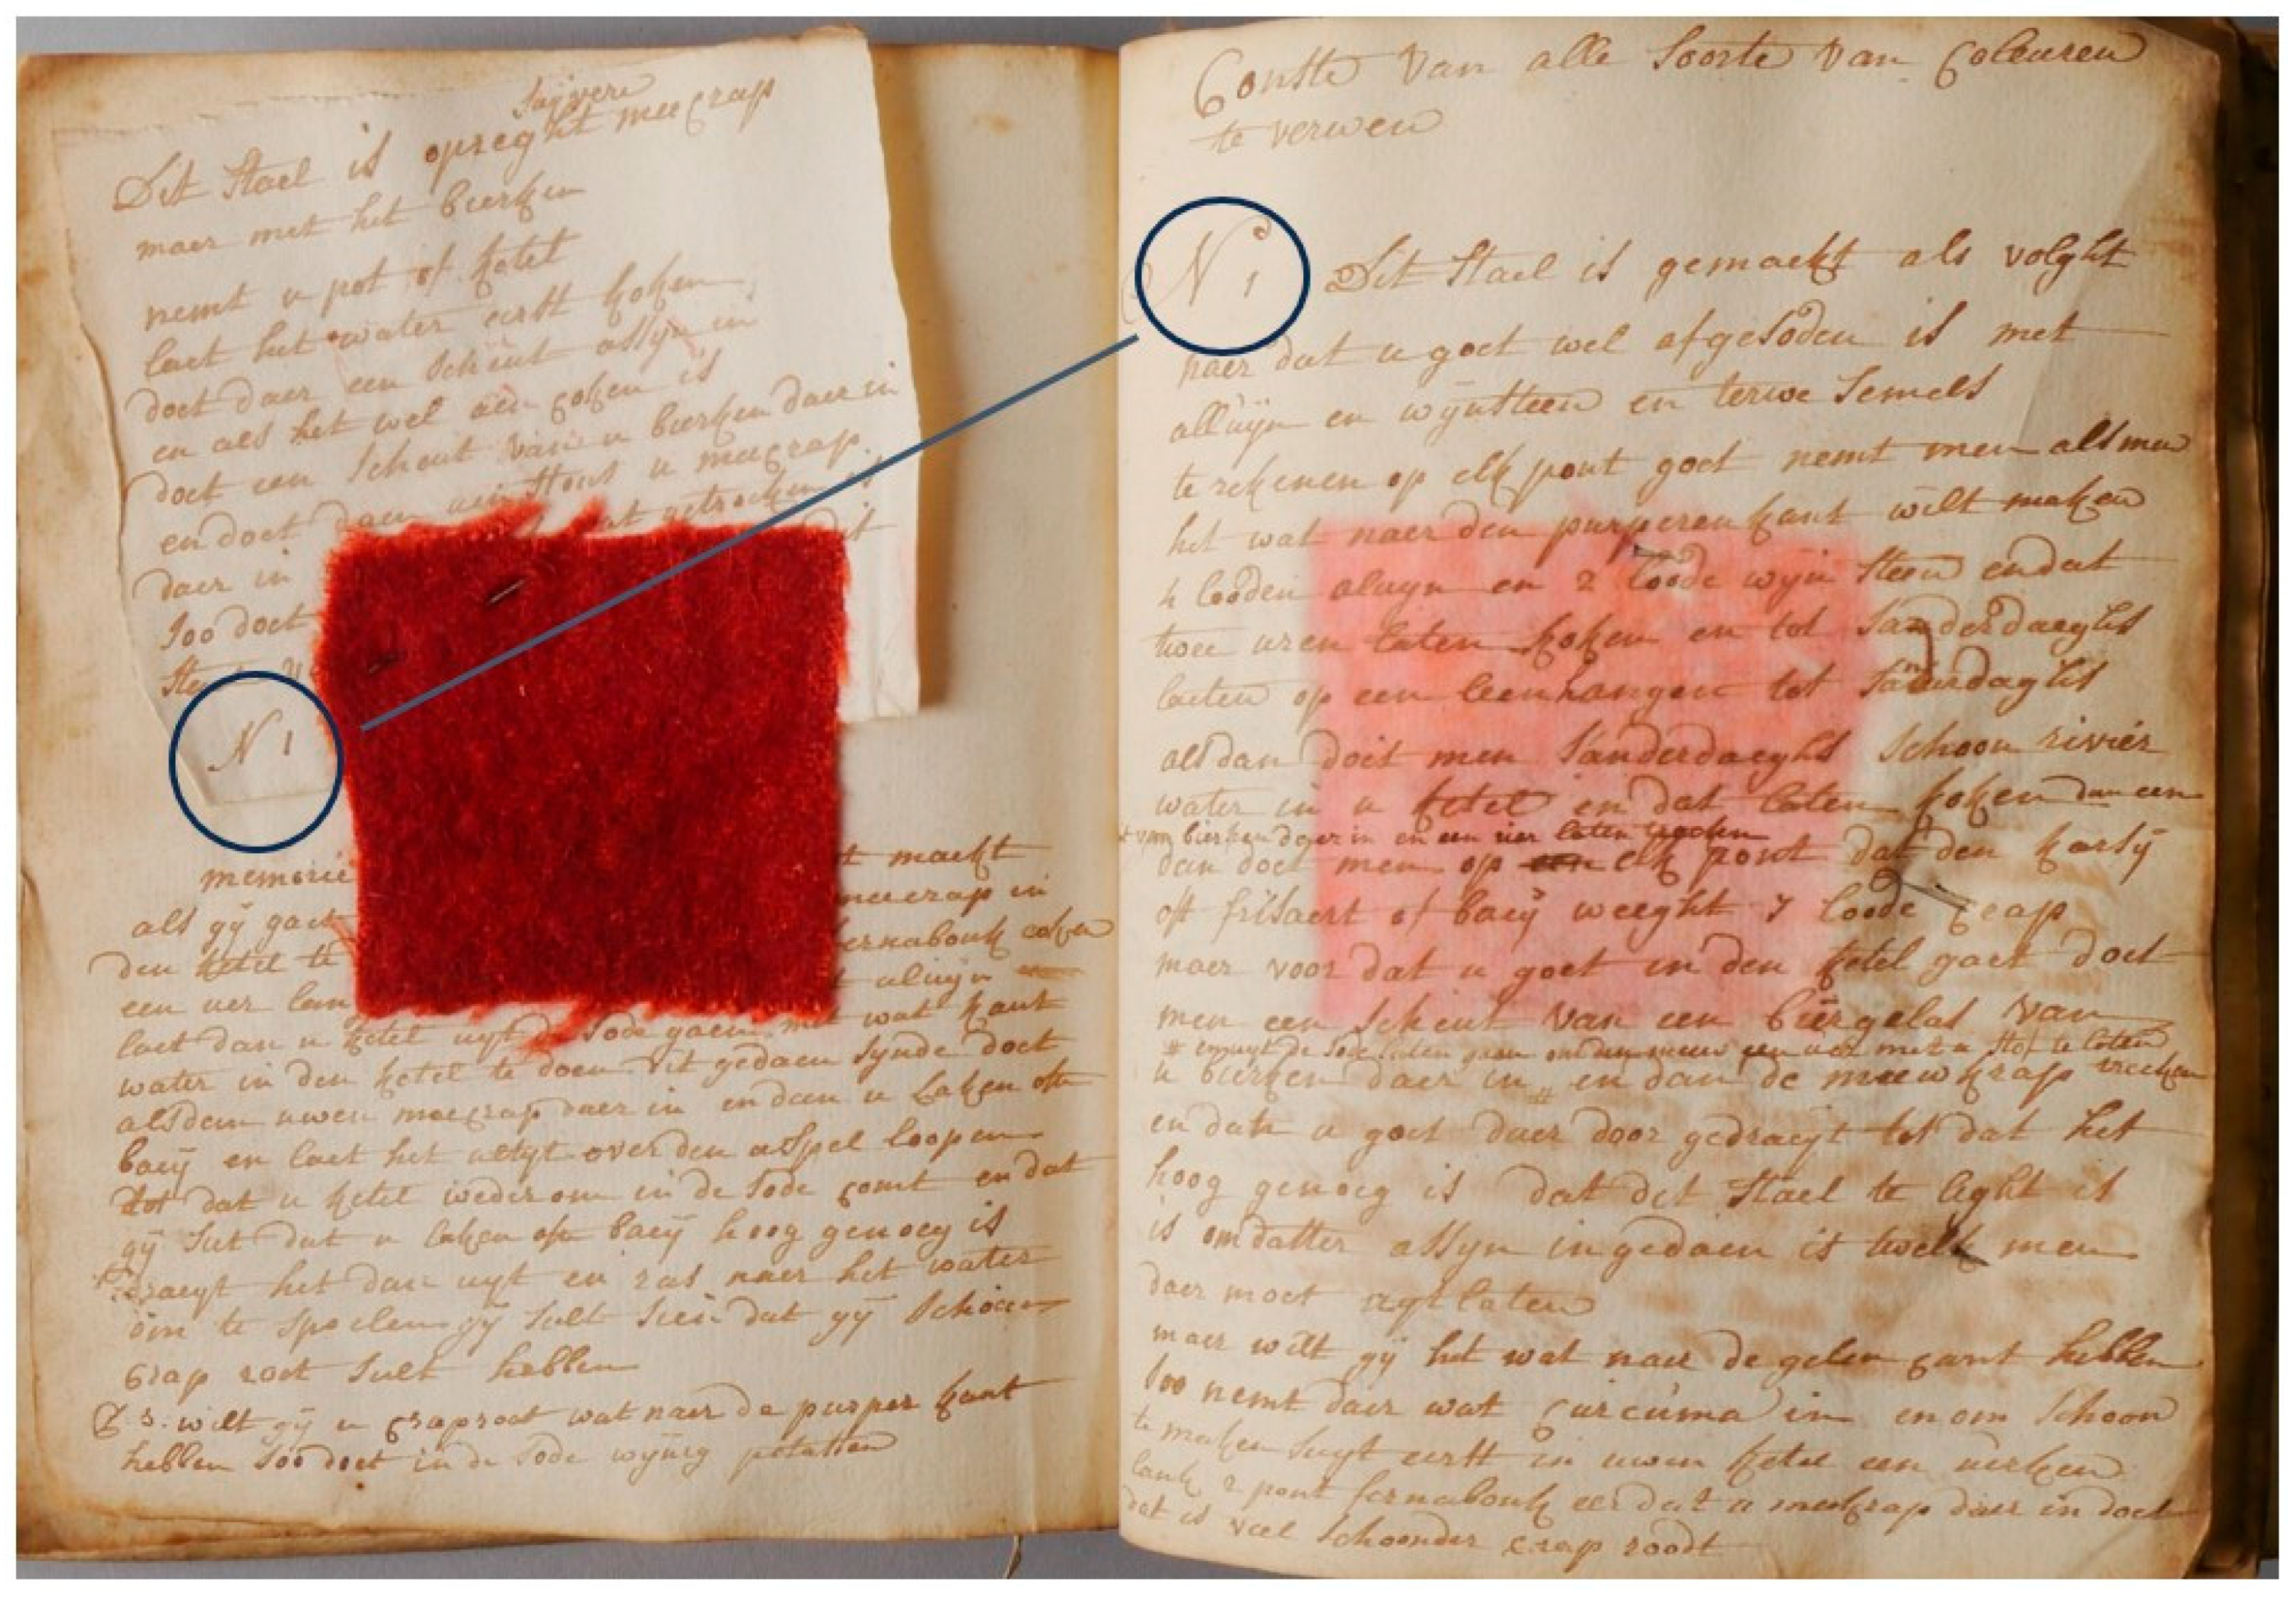 suÿvere
Dit Stael is opreght meecrap
maer met het bierken
nemt u pot of ketel
laet het water eerst koken
doet daer een scheut assyn in
en als het wel aen coken is
doet een scheut van u bierken daer in
en doet daer u meecrap
daer in at getrocken is
soo doet dit
N 1
memorie t maekt
als gÿ gaet meecrap in
den ketel te fernabouk coken
een uer lan t aluijn
laet dan u ketel uyt de sode gaen met wat kaut
water in den ketel te doen dit gedaen synde doet
alsdan uwen meecrap daer in en dan u laken oft
baeÿ en laet het altyt over den aspel loopen
tot dat u ketel wederom in de sode comt en dat
gÿ siet dat u laken oft baeÿ hoog genoeg is
draeyt het dan uyt en ras naer het water
om te spoelen gÿ sult sien dat gÿ schoon
crap root sult hebben
P.S. wilt gÿ u craproot wat naer de purper kant
hebben soo doet in de sode wÿnig potassen
Conste van alle soorte van Coleuren
te verwen
N 1 Dit Stael is gemaekt als volght
naer dat u goet wel afgesoden is met
alluÿn en wÿnsteen en terwe semels
te rekenen op elk pont goet nemt men als men
het wat naer den purperen kant wilt maken
4 looden aluyn en 2 loode wÿn steen en dat
twee uren laten koken en tot sanderdaeghs
laeten op een leen hangen tot sanderdaghs
als dan doet men sanderdaeghs schoon rivier
water in u ketel en dat laten koken dan een
van bierken daer in en een uer laten trecken
dan doet men op elk pont dat den karsÿ
oft frisaert of baeÿ weeght 7 loode crap
maer voor dat u goet in den ketel gaet doet
men een scheut van een biergelas van
# en uyt de sode laten gaen een uer met u stof te laten
u bierken daer in # en dan de meewkrap trecken
en dan u goet daer door gedraeyt tot dat het
hoog genoeg is dat dit Stael te light is
is omdatter assyn in gedaen is twelk men
daer moet uyt laten
maer wilt gÿ het wat naer de gelen cant hebben
soo nemt daer wat curcuma in en om schoon
te maken suyt eerst in uwen ketel een uerken
lank 2 pont fernabouk eer dat u meekrap daer in doet
dat is veel schoonder crap roodt